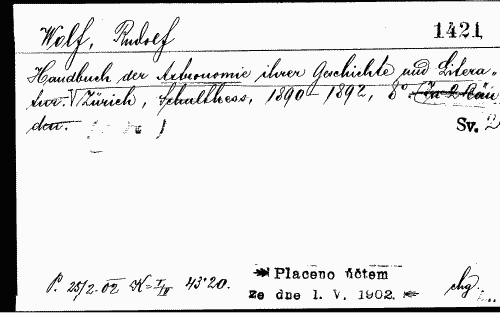 Wolf, Rudolf 1421
Handbuch der Astronomie ihrer Geschichte und Litera-
tur. Zürich, Schulthess, 1890-1892, 8° (In 2 Bän
den.
Sv. 2
P. 25/2-02 K=I/II 43·20.
Placeno účtem
ze dne 1. V. 1902.
chg.